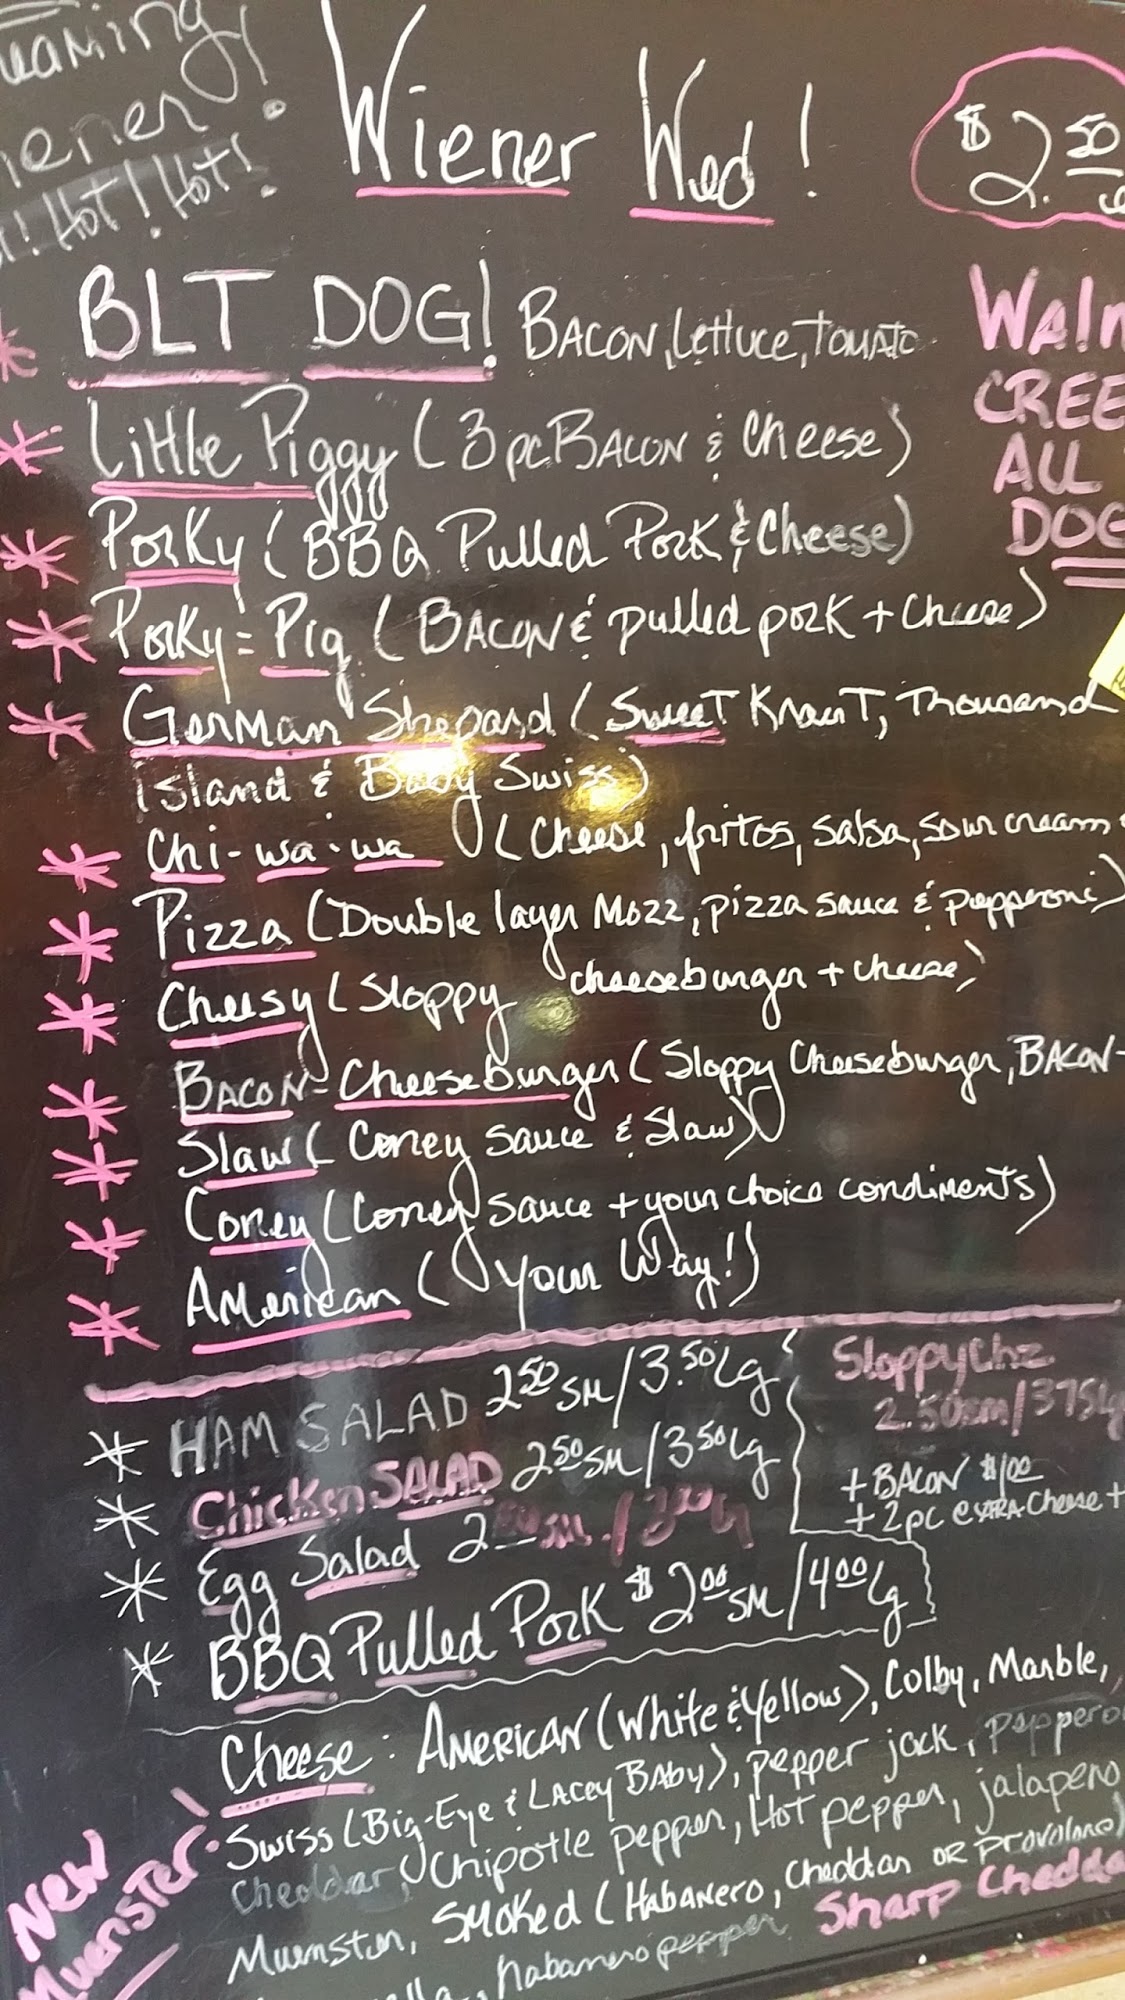 Wiener Wed!
$2.50
Hot! Hot!
* BLT DOG! BACON, Lettuce, TOMATO
* Little Piggy (3pc BACON & Cheese)
* Porky (BBQ Pulled Pork & Cheese)
* Porky = Pig (BACON & pulled pork + cheese)
* German Shepard (Sweet Kraut, Thousand
Island & Baby Swiss)
* Chi-wa-wa (Cheese, fritos, salsa, sour cream
* Pizza (Double layer Mozz, pizza sauce & pepperoni)
* Cheesy (Sloppy cheeseburger + cheese)
* BACON-Cheeseburger (Sloppy Cheeseburger, BACON-
* Slaw (Coney sauce & Slaw)
* Coney (Coney sauce + your choice condiments)
* American (Your Way!)
ALL
* HAM SALAD 2.50 SM/3.50 Lg
* Chicken SALAD 2.50 SM/3.50 Lg
* Egg Salad 2
* BBQ Pulled Pork $2.00 SM/4.00 Lg
Sloppy Chz.
2.50sm/375lg
+ BACON $1.00
+ 2pc extra Cheese +
Cheese: American (White & Yellow), Colby, Marble,
Swiss (Big-Eye & Lacey Baby), pepper jack,
Cheddar, Chipotle pepper, Hot pepper, jalapeno
Muenster, Smoked (Habanero, Cheddar or Provolone)
habanero pepper Sharp
New
Muenster